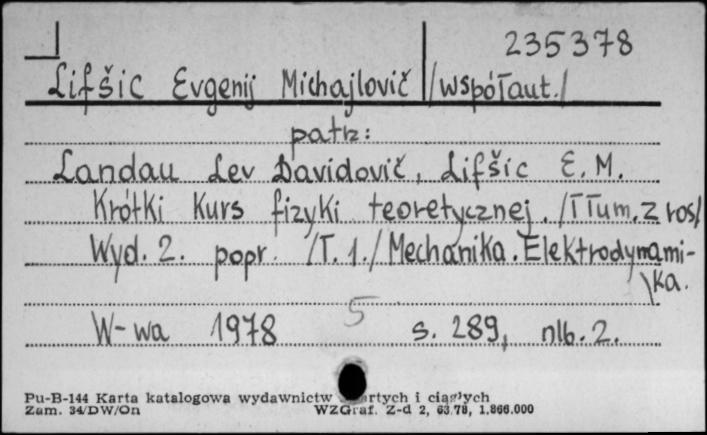 235378
Lifšic Evgenij Michajlovič /współaut./
patrz:
Landau Lev Davidovič, Lifšic E. M.
Krótki kurs fizyki teoretycznej. /Tłum. z ros/
Wyd. 2. popr. /T. 1./ Mechanika. Elektrodynami-
ka.
5
W-wa 1978 s. 289, nlb. 2.
Pu-B-144 Karta katalogowa wydawnictw i ciągłych
Zam. 34/DW/On WZGraf. Z-d 2, 63.78, 1,866.000